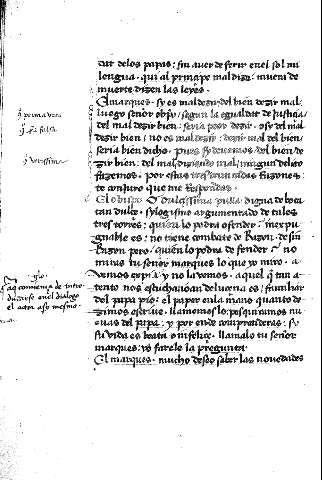 dar de los papas: sin auer de ferir en el sol mi
lengua. qui al principe maldize: muera de
muerte dizen las leyes.
El marques. sy es mal dezir del bien dezir mal:
luego señor obpo segun la egualdar de justicia
del mal dezir bien: seria peor dezir. o sy del mal
dezir bien / no es mal dezir: dezir mal del bien /
seria bien dicho. pues sy deuemos del bien de
zir bien: del mal diziendo mal / ningun delito
fazemos. por estas tres razones:
te conjuro que me respondas.
El obispo. O dulcissima pulla. digna de boca
tan dulçe. sylogismo argumentado de tales
tres torres: quien lo podra ofender: inexpu
gnable es: no tiene combate de Razon. de sin
Razon pero. quien lo podra defender: no
miras tu señor marques lo que yo miro. a
vemos y no la vemos. aquel que tan a
tento nos escuchaua de lucena es / familiar
del papa pio: el papel en la mano quanto de
zimos escriue. llamemos lo: pesquiramos nu
euas del papa: y por ende comprenderas: sy
su vida es beata o infelice. llamalo tu señor
marques: yo fare le la pregunta.
El marques. mucho deseo saber las nouedades
prima vera
falsa
verissima
aq comiença de intro
duzirse en el dialogo
el actor asy mesmo.